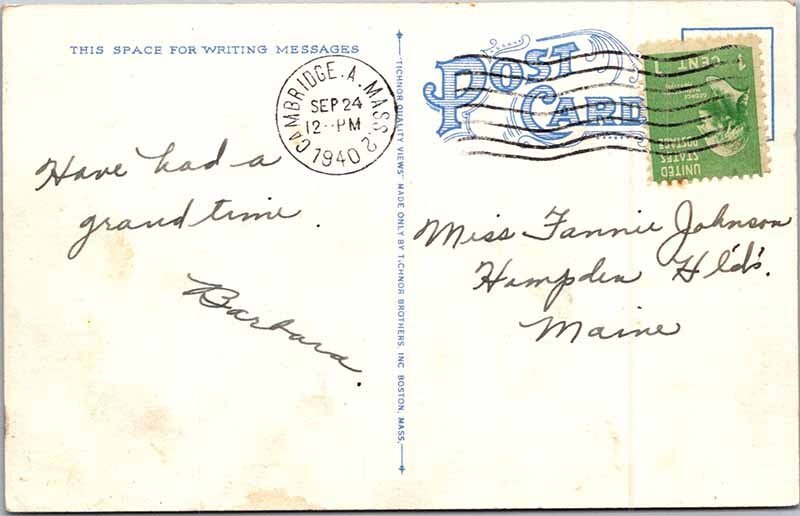 THIS SPACE FOR WRITING MESSAGES
POST CARD
CAMBRIDGE.A.MASS.2
SEP 24
12--PM
1940
1 CENT 1
UNITED
STATES
POSTAGE
Have had a
grand time.
Barbara.
"TICHNOR QUALITY VIEWS" MADE ONLY BY TICHNOR BROTHERS, INC BOSTON, MASS.
Miss Fannie Johnson
Hampden Hl'd's.
Maine